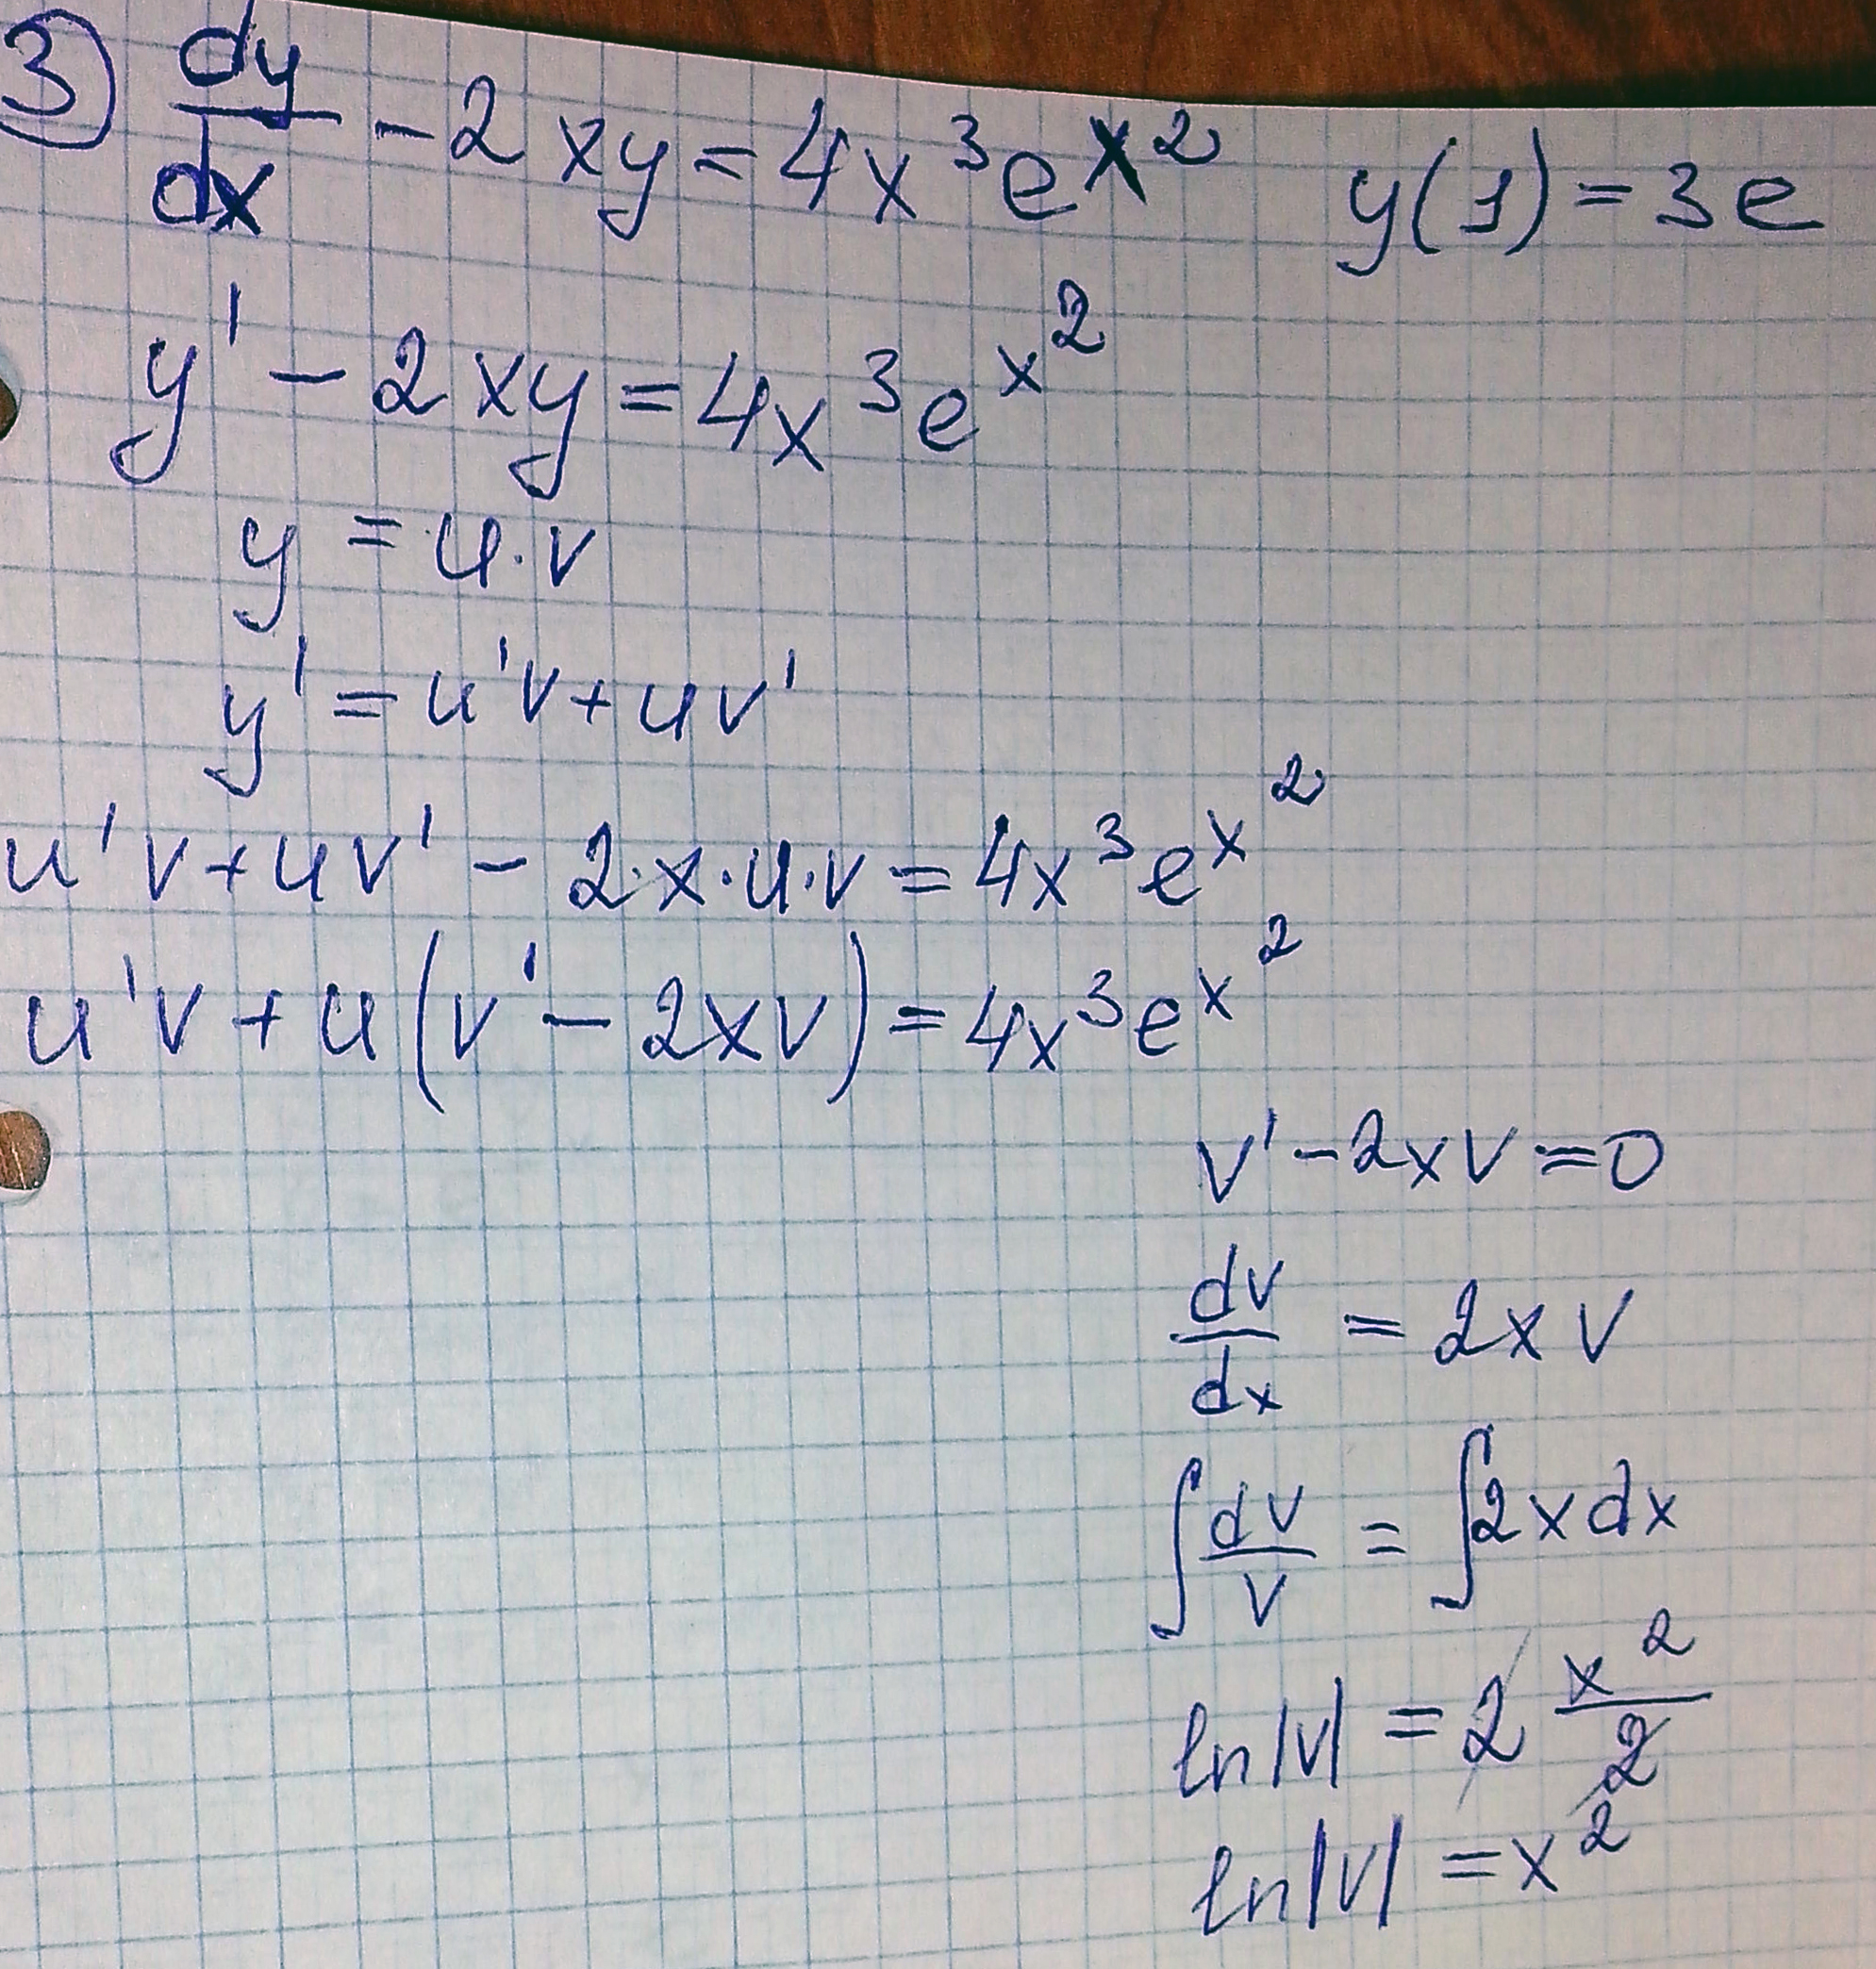 3) dy/dx - 2xy = 4x³eˣ² y(1) = 3e
y' - 2xy = 4x³e^x²
y = u·v
y' = u'v + uv'
u'v + uv' - 2·x·u·v = 4x³e^x²
u'v + u(v' - 2xv) = 4x³e^x²
v' - 2xv = 0
dv/dx = 2xv
∫dv/v = ∫2xdx
ln|v| = 2 x²/2
ln|v| = x²